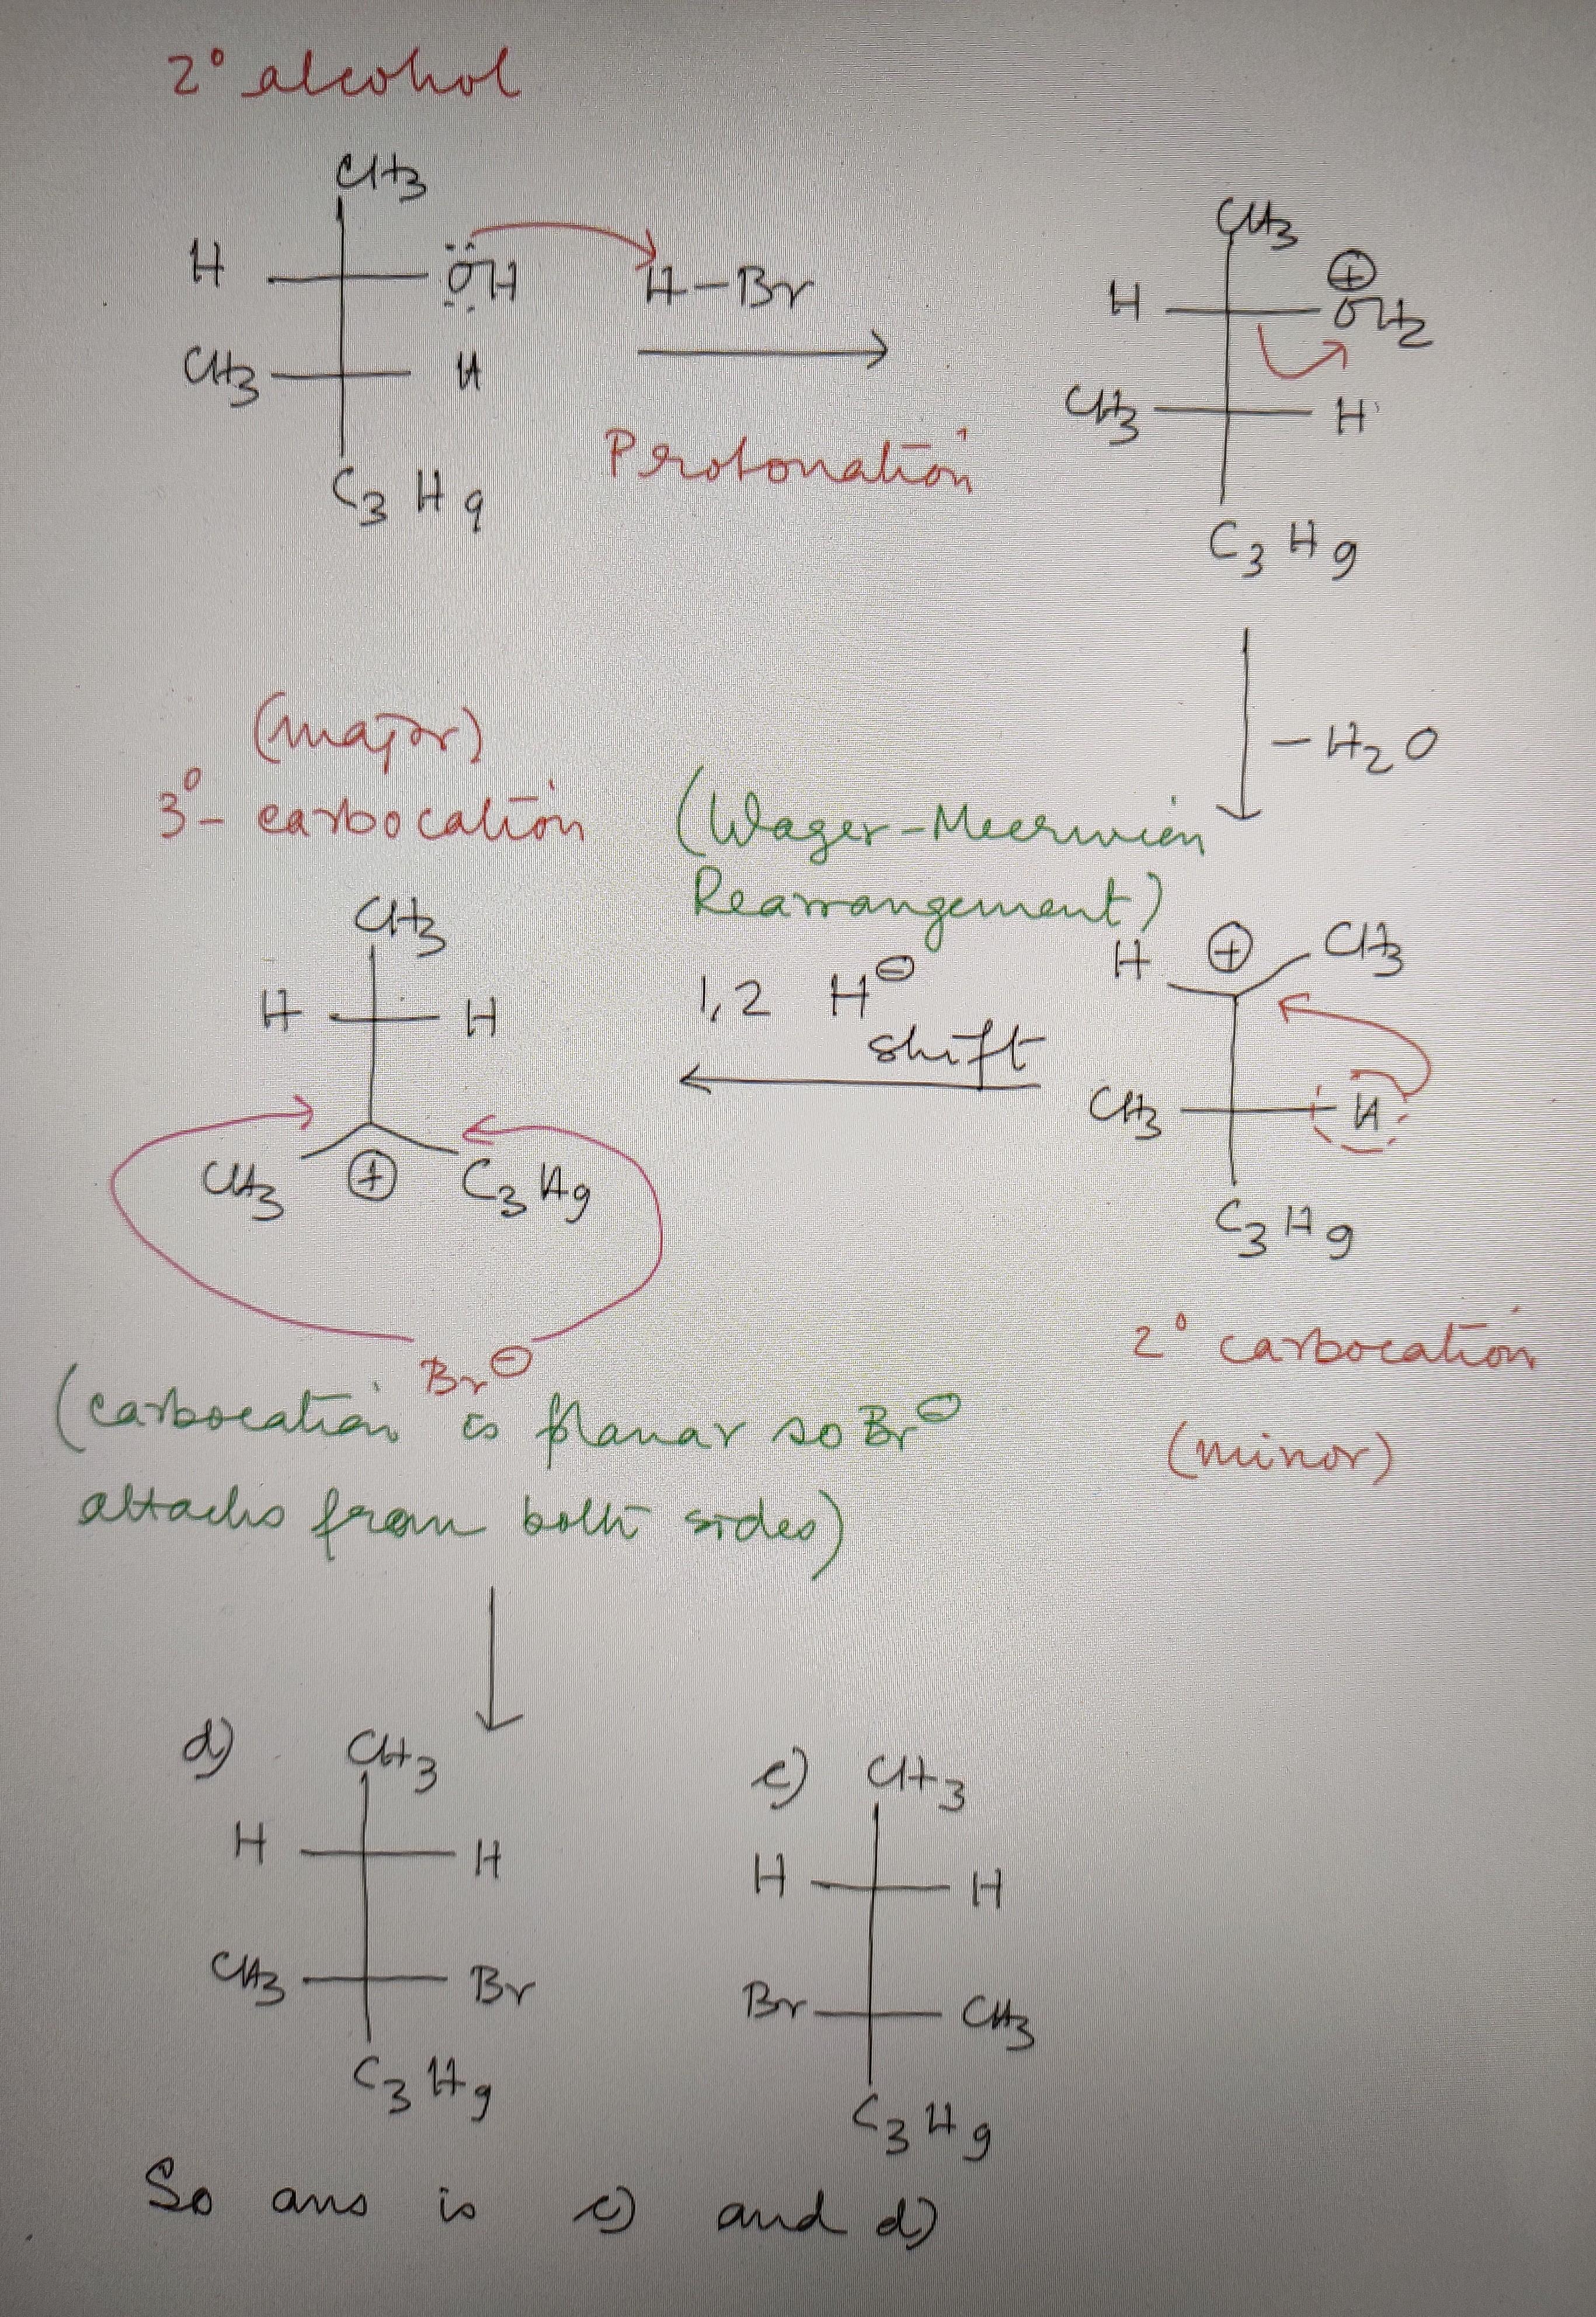 2° alcohol
CH3
H
ÖH
H-Br
CH3
H
C3H9
Protonation
CH3
H
⊕
OH2
CH3
H
C3H9
-H2O
(major)
3°- carbocation
(Wager-Meerwien
Rearrangement)
1,2 H⊖
shift
CH3
H
H
CH3
⊕
C3H9
H
⊕
CH3
CH3
H
C3H9
2° carbocation
(minor)
Br⊖
(carbocation is planar so Br⊖
attacks from both sides)
d)
CH3
H
H
CH3
Br
C3H9
c)
CH3
H
H
Br
CH3
C3H9
So ans is c) and d)